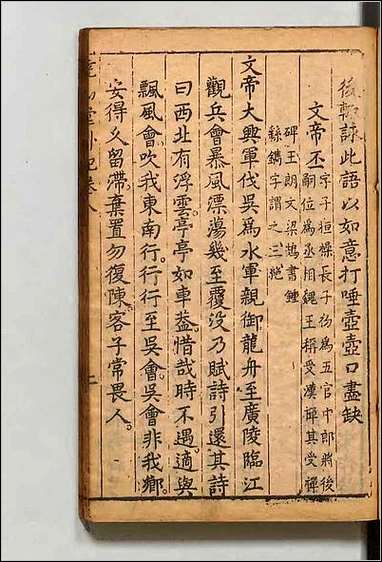 後輒詠此語以如意打唾壺壺口盡缺
文帝丕
字子桓操長子初爲五官中郎將後
嗣位爲丞相魏王稱受漢禪其受禪
碑王朗文梁鵠書鍾
繇鐫字謂之三絶
文帝大興軍伐吳爲水軍親御龍舟至廣陵臨江
觀兵會暴風漂蕩幾至覆没乃賦詩引還其詩
曰西北有浮雲亭亭如車蓋惜哉時不遇適與
飄風會吹我東南行。行行至吳會。吳會非我鄉。
安得久留滯。棄置勿復陳。客子常畏人。
堯山堂外紀卷八